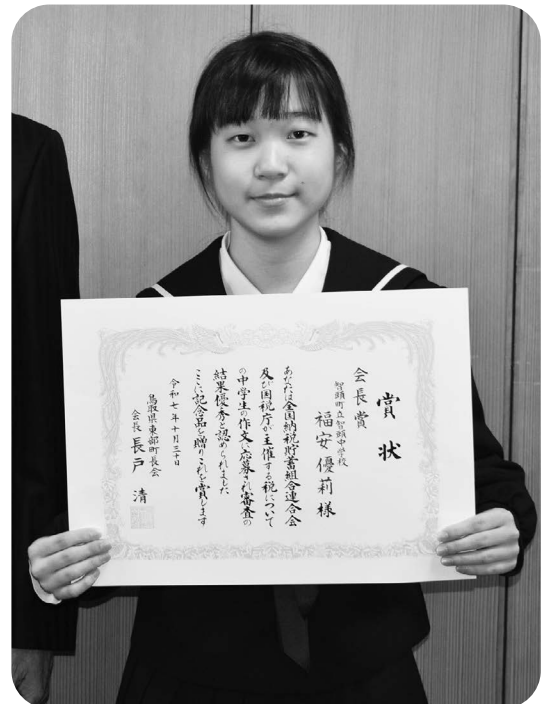 賞状
会長賞
智頭町立智頭中学校
福安優莉様
あなたは全国納税貯蓄組合連合会
及び国税庁が主催する税について
の中学生の作文に応募され審査の
結果優秀と認められました
ここに記念品を贈りこれを賞します
令和七年十月三十日
鳥取県東部町長会
会長 長戸清